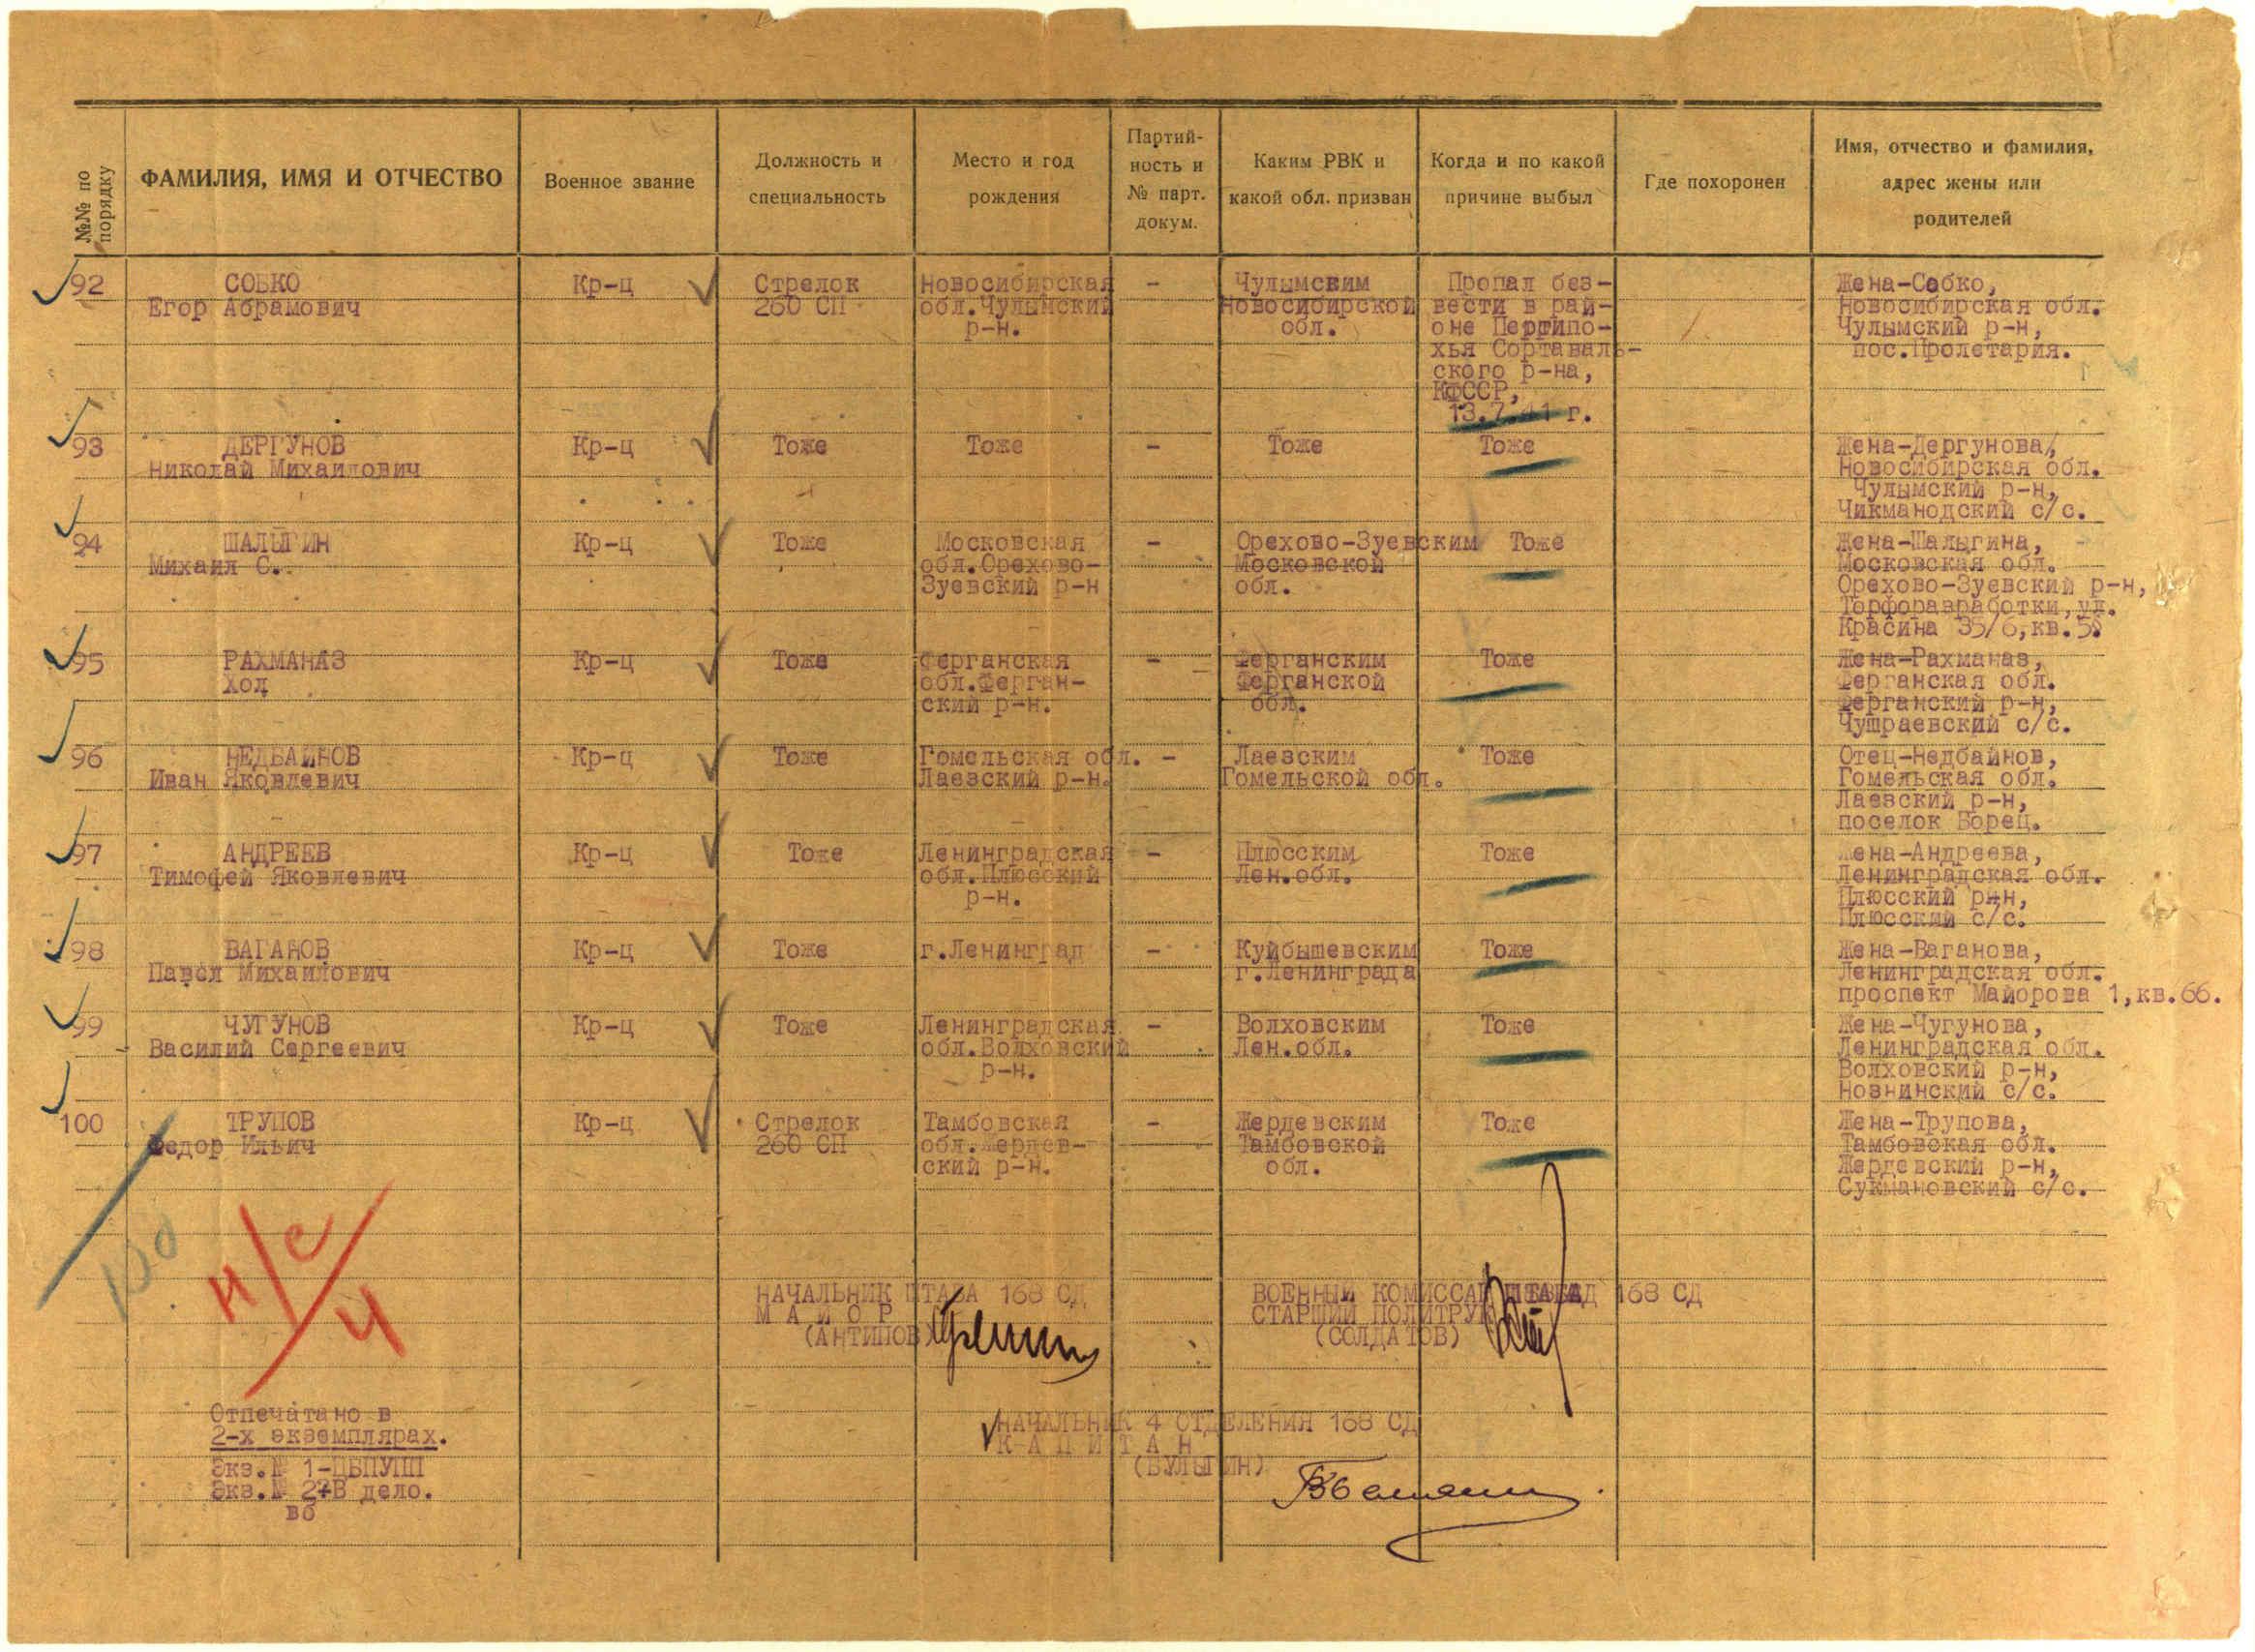 №№ по порядку
ФАМИЛИЯ, ИМЯ И ОТЧЕСТВО
Военное звание
Должность и
специальность
Место и год
рождения
Партий-
ность и
№ парт.
докум.
Каким РВК и
какой обл. призван
Когда и по какой
причине выбыл
Где похоронен
Имя, отчество и фамилия,
адрес жены или
родителей
92
СОБКО
Егор Абрамович
Кр-ц
Стрелок
260 СП
Новосибирская
обл.Чулымский
р-н.
-
Чулымским
Новосибирской
обл.
Пропал без-
вести в рай-
оне
хья Сортаваль-
ского р-на,
КФССР,
13.7.41 г.
Жена-Собко,
Новосибирская обл.
Чулымский р-н,
пос.Пролетария.
93
ДЕРГУНОВ
Николай Михайлович
Кр-ц
Тоже
Тоже
-
Тоже
Тоже
Жена-Дергунова,
Новосибирская обл.
Чулымский р-н,
Чикманодский с/с.
94
ШАЛЫГИН
Михаил С.
Кр-ц
Тоже
Московская
обл.Орехово-
Зуевский р-н
-
Орехово-Зуевским
Московской
обл.
Тоже
Жена-Шалыгина,
Московская обл.
Орехово-Зуевский р-н,
Торфоразработки,ул.
Красина 35/6,кв.
95
РАХМАНАЗ
Ход
Кр-ц
Тоже
Ферганская
обл.Ферган-
ский р-н.
-
Ферганским
Ферганской
обл.
Тоже
Жена-Рахманаз,
Ферганская обл.
Ферганский р-н,
Чушраевский с/с.
96
НЕДБАЙНОВ
Иван Яковлевич
Кр-ц
Тоже
Гомельская обл.
Лаевский р-н.
-
Лаевским
Гомельской обл.
Тоже
Отец-Недбайнов,
Гомельская обл.
Лаевский р-н,
поселок Борец.
97
АНДРЕЕВ
Тимофей Яковлевич
Кр-ц
Тоже
Ленинградская
обл.Плюсский
р-н.
-
Плюсским
Лен.обл.
Тоже
Жена-Андреева,
Ленинградская обл.
Плюсский р-н,
Плюсский с/с.
98
ВАГАНОВ
Павел Михайлович
Кр-ц
Тоже
г.Ленинград
-
Куйбышевским
г.Ленинграда
Тоже
Жена-Ваганова,
Ленинградская обл.
проспект Майорова 1,кв.66.
99
ЧУГУНОВ
Василий Сергеевич
Кр-ц
Тоже
Ленинградская
обл.Волховский
р-н.
-
Волховским
Лен.обл.
Тоже
Жена-Чугунова,
Ленинградская обл.
Волховский р-н,
Новнинский с/с.
100
ТРУПОВ
Федор Ильич
Кр-ц
Стрелок
260 СП
Тамбовская
обл.Жердев-
ский р-н.
-
Жердевским
Тамбовской
обл.
Тоже
Жена-Трупова,
Тамбовская обл.
Жердевский р-н,
Сукмановский с/с.
100
н/с
4
НАЧАЛЬНИК ШТАБА 168 СД
МАЙОР
(АНТИПОВ)
ВОЕННЫЙ КОМИССАР ШТАБА 168 СД
СТАРШИЙ ПОЛИТРУК
(СОЛДАТОВ)
НАЧАЛЬНИК 4 ОТДЕЛЕНИЯ 168 СД
КАПИТАН
(БУЛЫГИН)
Отпечатано в
2-х экземплярах.
Экз.№ 1-ЦБПУПП
Экз.№ 2-В дело.
вб